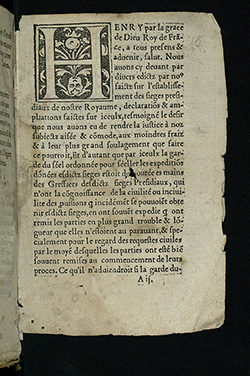 HENRY par la grace
de Dieu Roy de Frã-
ce, a tous presens &
aduenir, salut. Nous
auons cy deuant par
diuers edictz par noꝰ
faictz sur l'establisse-
ment des sieges presi-
diaux de nostre Royaume, declarations & am-
pliations faictes sur iceulx, tesmoigné le desir
que nous auons eu de rendre la iustice à noz
subiectz aisée & cõmode, aux moindres fraiz
& à leur plus grand soulagement que faire
ce pourroit, Et d'autant que par iceulx la gar-
de du seel ordonnée pour séeller les expeditiõs
dõnées esdictz sieges estoit demourée es mains
des Greffiers desdictz sieges Presidiaux, qui
n'ont la cognoissance de la ciuilité ou inciui-
lité des prouisions q̃ incidémẽt se pouuoiẽt obte
nir esdictz sieges, ens ont souuẽt expedié q̃ ont
remis les parties en plus grand trouble & lõ-
gueur que elles n'estoient au parauant, & spe-
cialement pour le regard des requestes ciuiles
par le moyẽ desquelles les parties ont esté biẽ
souuent remises au commencement de leurs
proces. Ce qu'il n'aduiendroit si la garde du-
A ij.